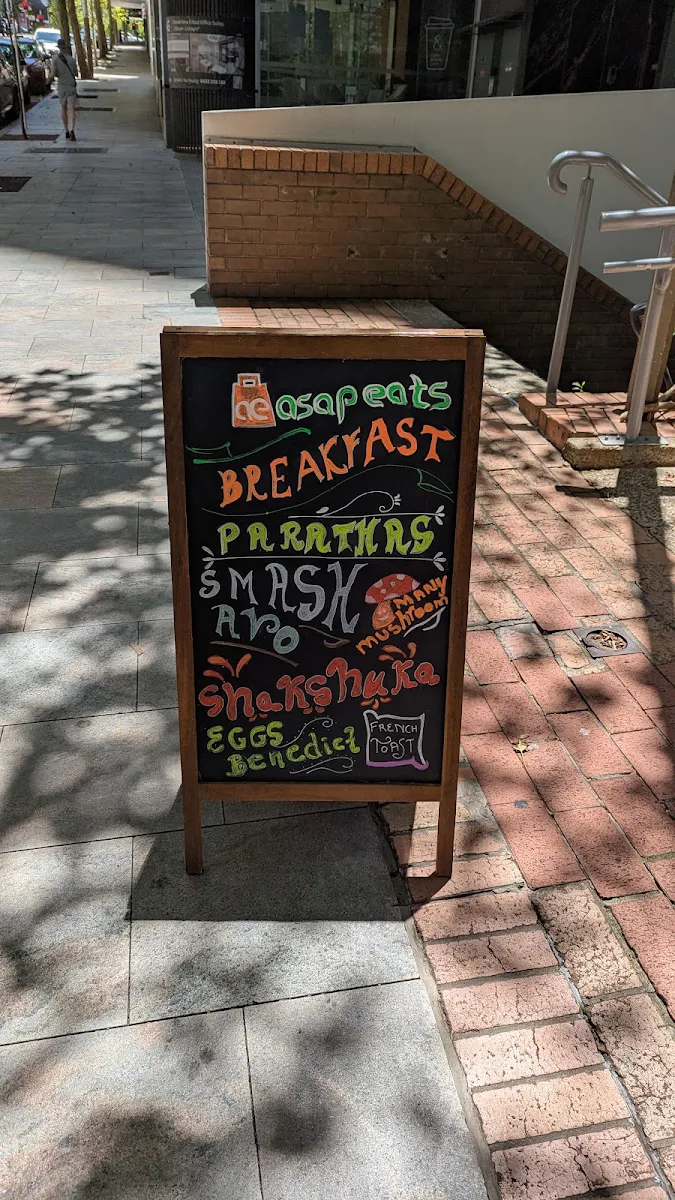 ae asap eats
BREAKFAST
PARATHAS
SMASH
AVO
MANY
mushroom
shakshuka
EGGS
Benedict
FRENCH
TOAST